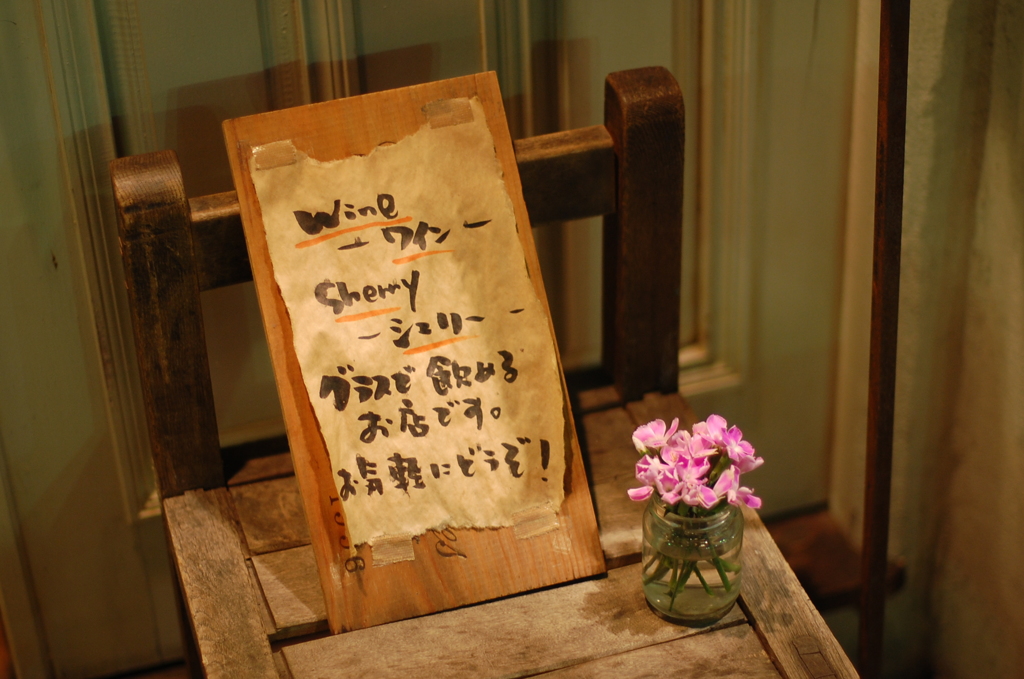 Wine
- ワイン -
Sherry
- シェリー -
グラスで飲める
お店です。
お気軽にどうぞ!